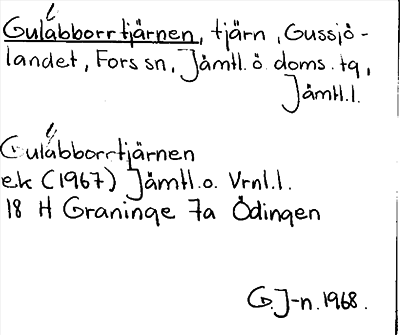 Gulåbborrtjärnen, tjärn, Gussjö-
landet, Fors sn, Jämtl. ö. doms. tq,
Jämtl. l.
Gulåbborrtjärnen
ek (1967) Jämtl. o. Vrnl. l.
18 H Graninge 7a Ödingen
G. J-n. 1968.